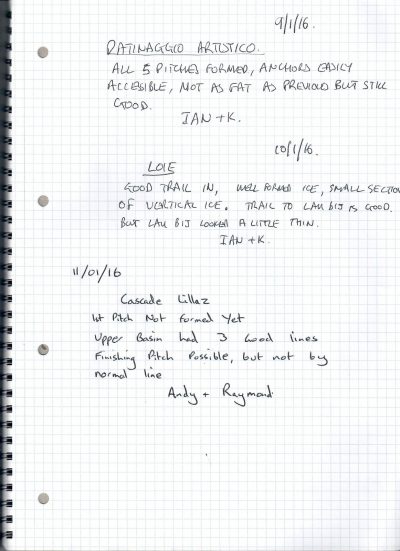 9/1/16.
PATINAGGIO ARTISTICO.
ALL 5 PITCHES FORMED, ANCHORS EASILY
ACCESSIBLE, NOT AS FAT AS PREVIOUS BUT STILL
GOOD.
IAN + K.
10/1/16.
LOIE
GOOD TRAIL IN, WELL FORMED ICE, SMALL SECTION
OF VERTICAL ICE. TRAIL TO LAU BIJ IS GOOD.
BUT LAU BIJ LOOKED A LITTLE THIN.
IAN + K.
11/01/16
Cascade Lillaz
1st Pitch Not Formed Yet
Upper Basin had 3 Good lines
Finishing Pitch Possible, but not by
normal line
Andy + Raymond